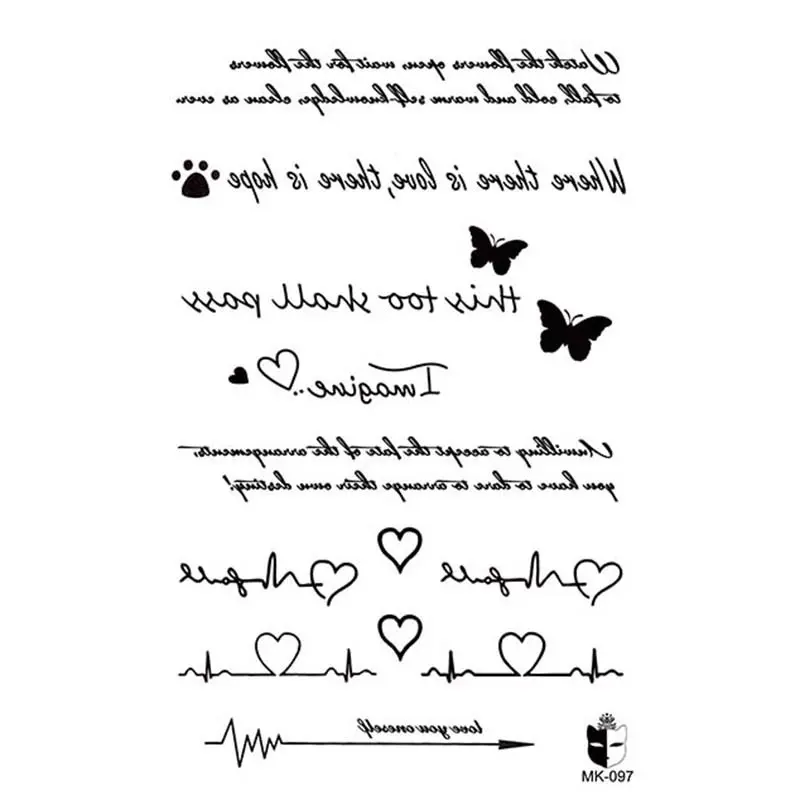 Watch the flowers open, wait for the flowers
to fall, cold and warm self-knowledge, clean as ever.
Where there is love, there is hope
this too shall pass
Imagine...
Unwilling to accept the fate of the arrangements,
you have to dare to arrange their own destiny!
love you oneself
MK-097